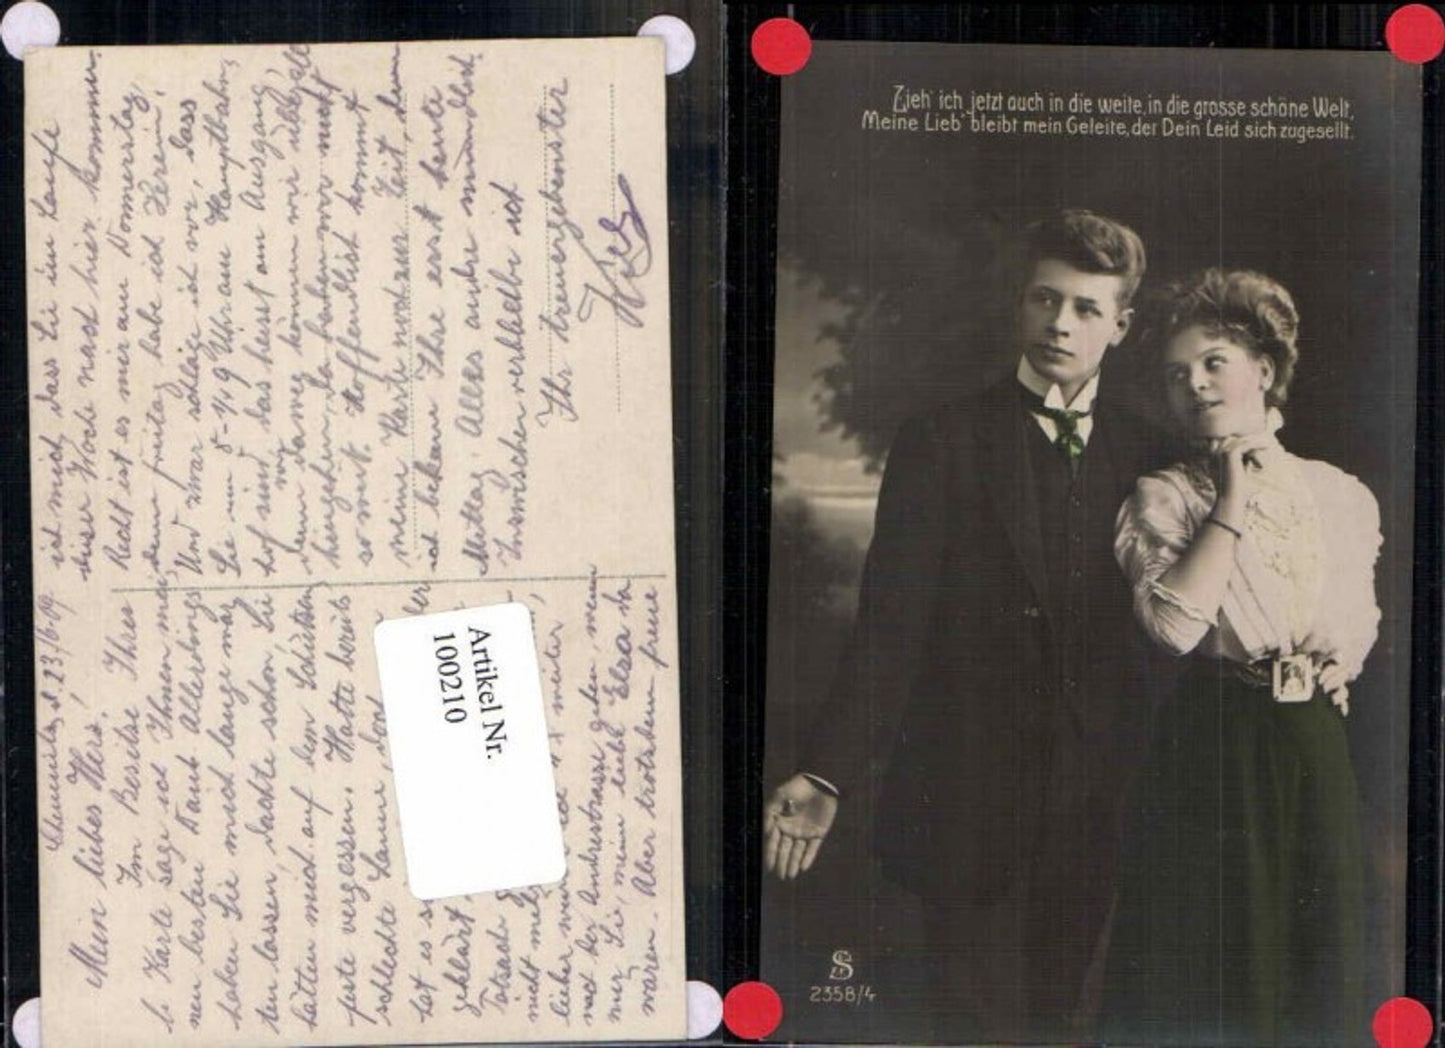 Chemnitz, d. 23/6.09
Mein liebes Herz,
Im Besitze Ihrer
l. Karte sage ich Ihnen mei
nen besten Dank. Allerdings
haben Sie mich lange war
ten lassen, dachte schon, Sie
hätten mich auf dem Schützen
feste vergessen. Hatte bereits
schlechte Laune, doch
hat es s der
geklärt.
Tatsache
nicht
leider weiter,
nach der Andrestrasse gehen, wenn
nur Sie, meine liebe Elsa da
wären. Aber trotzdem freue
ich mich, dass Sie im Laufe
dieser Woche nach hier kommen.
Recht ist es mir am Donnerstag,
denn Freitag habe ich Verein.
Und zwar schlage ich vor, dass
Sie um 8-½9 Uhr am Hauptbahn,
hof sind, das heisst am Ausgang,
wir
denn können wir überall
hingehen, da haben wir nicht
so weit. Hoffentlich kommt
meine Karte noch zur Zeit, denn
ich bekam Ihre erst heute
Mittag. Alles andre mündlich.
Inzwischen verbleibe ich
Ihr treuergebenster
Artikel Nr.
100210
Zieh' ich jetzt auch in die weite, in die grosse schöne Welt,
Meine Lieb' bleibt mein Geleite, der Dein Leid sich zugesellt.
S
2358/4